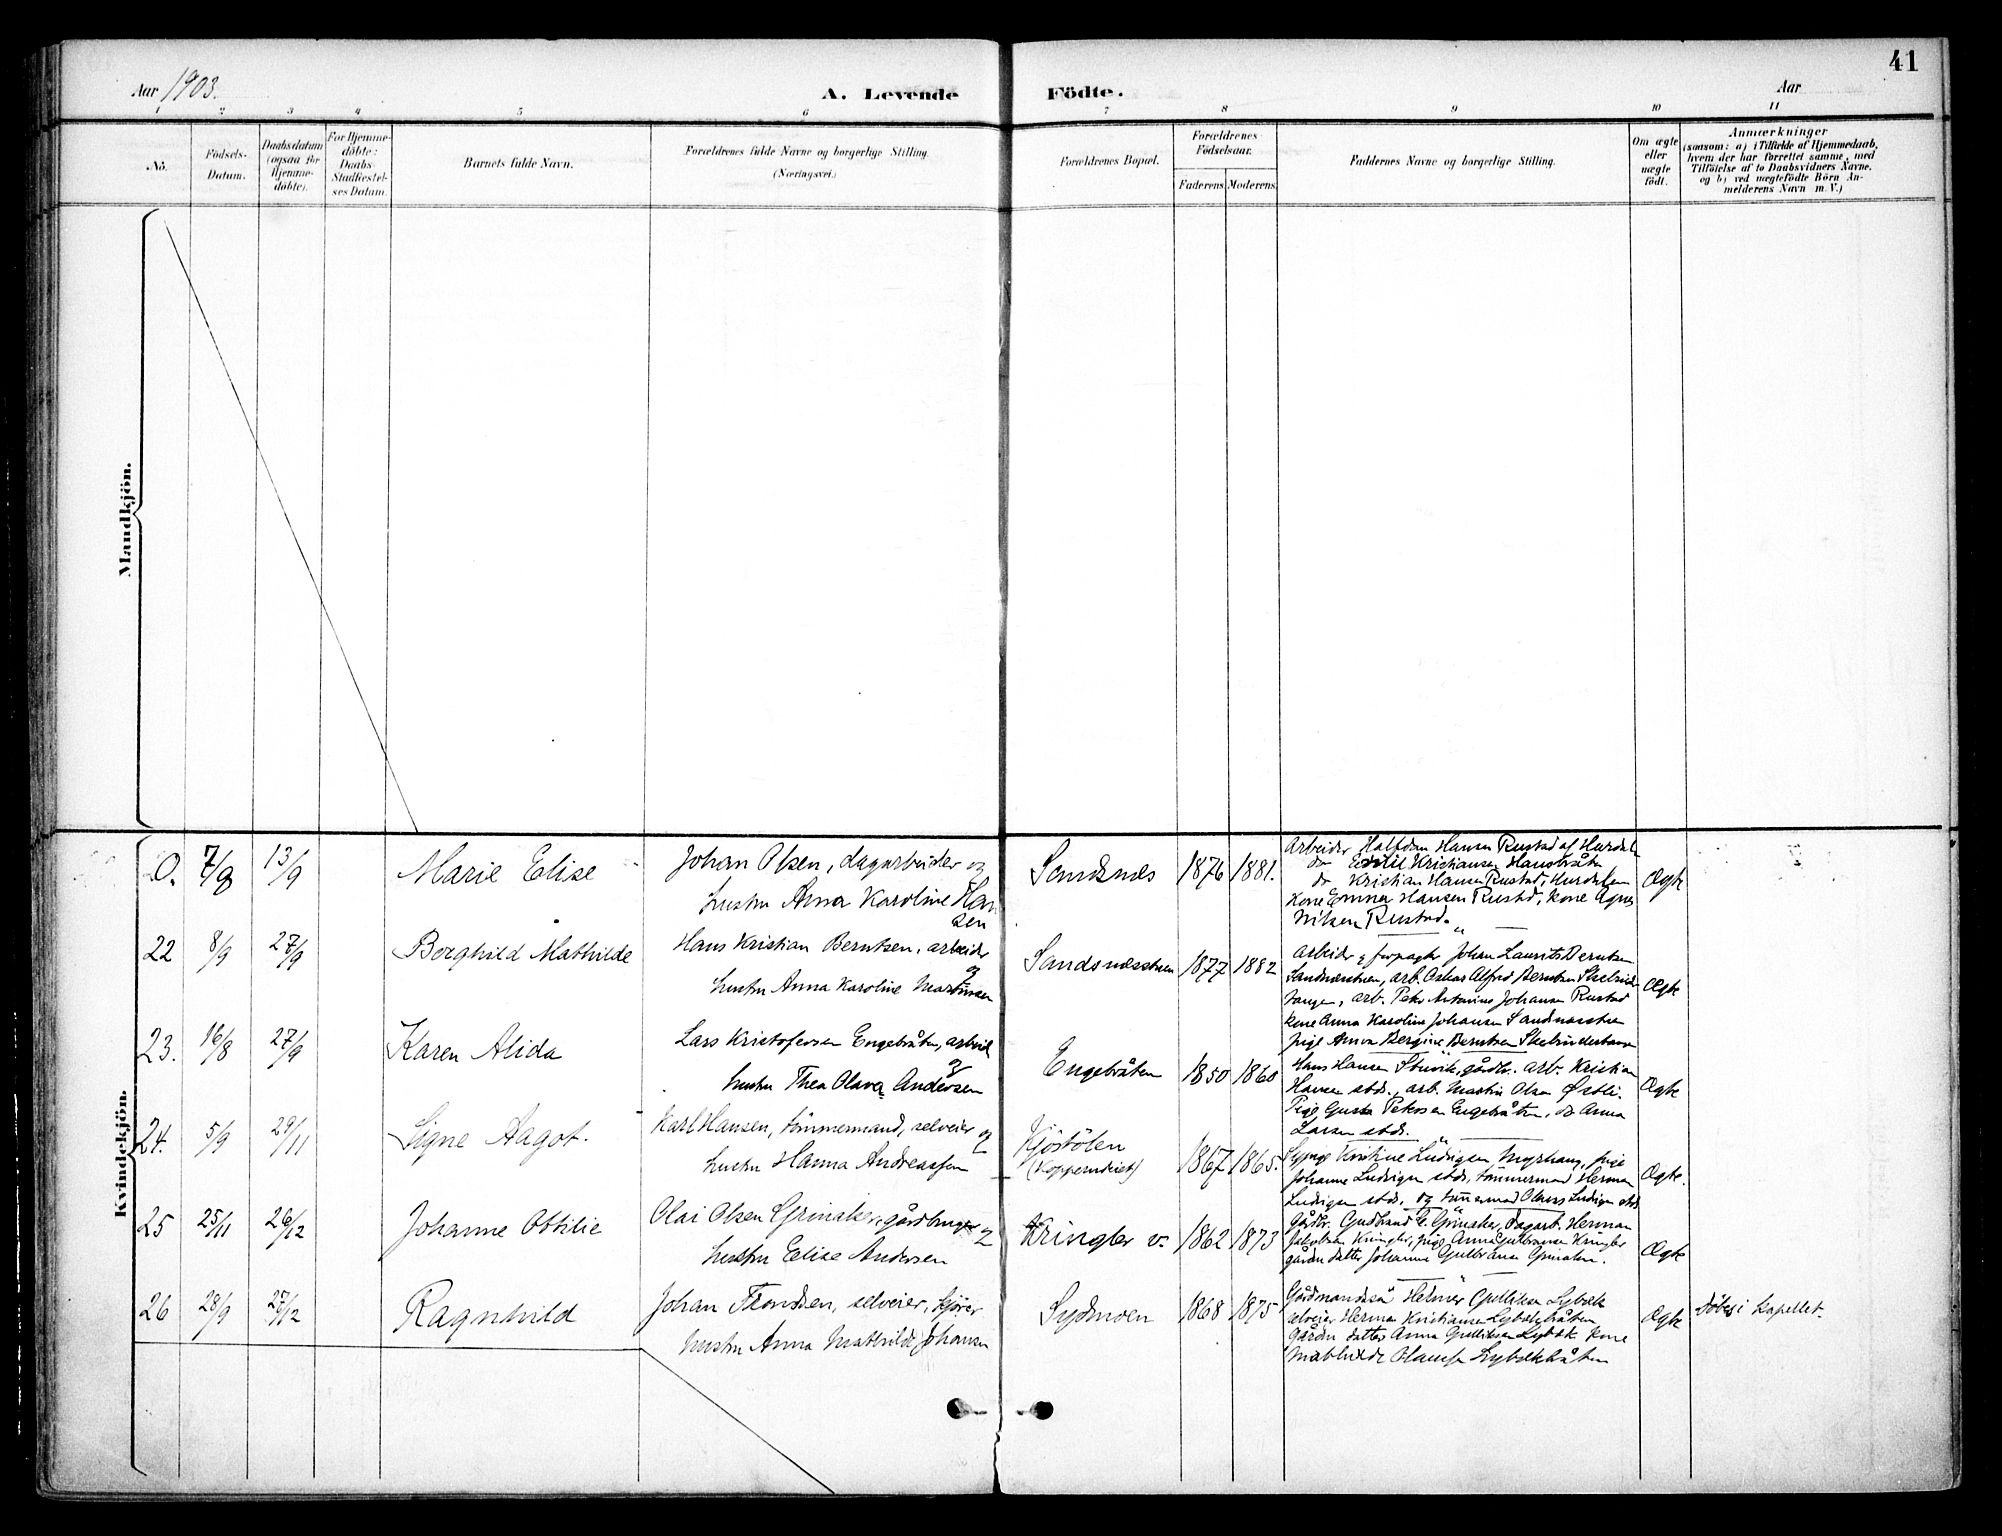 41
Aar 1903.
A. Levende Födte.
Aar
1 2 3 4 5 6 7 8 9 10 11
No.
Födsels-
Datum.
Daabsdatum
(ogsaa for
Hjemme-
döbte).
For Hjemme-
döbte:
Daabs
Stadfæstel-
ses Datum.
Barnets fulde Navn.
Forældrenes fulde Navne og borgerlige Stilling.
(Næringsvei.)
Forældrenes Bopæl.
Forældrenes
Födselsaar.
Faderens Moderens.
Faddernes Navne og borgerlige Stilling.
Om ægte
eller
uægte
födt.
Anmærkninger
(saasom: a) i Tilfælde af Hjemmedaab,
hvem der har forrettet samme, med
Tilföielse af to Daabsvidners Navne,
og b) ved uægtefödte Börn An-
melderens Navn m. V.)
Mandkjön.
Kvindekjön.
O. 7/8 13/9 Marie Elise
Johan Olsen, dagarbeider og
hustru Anna Karoline Han
sen
Sandsnes 1876 1881.
Arbeider Halfdan Hansen Rustad af Hurdalen
do Emil Kristiansen Hansbråten
do Kristian Hansen Rustad, Hurdalen
Kone Emma Hansen Rustad, kone Agnes
Nilsen Rustad.
Ægte
22 8/9 27/9 Borghild Mathilde
Hans Kristian Berntsen, arbeider
og
hustru Anna Karoline Martinsen
Sandsnesstuen 1877 1882
Arbeider g forpagter Johan Laurits Berntsen
Sandnesstuen, arb. Oskar Alfred Berntsen
tangen, arb. Peter Antonius Johansen Rustad
kone Anna Karoline Johansen Sandnesstuen
pige Anna Bergine Berntsen
Ægte
23. 16/8 27/9 Karen Alida
Lars Kristofersen Engebråten, arbeid
og
hustru Thea Olava Andersen
Engebråten 1850 1860
Hans Hansen gårdbr. arb. Kristian
Hansen stds., arb. Martin Olsen Østli.
Pige Gusta Petersen Engebråten, do Anna
Larsen stds.
Ægte
24. 5/9 29/11 Signe Aagot.
Karl Hansen, tömmermand, selveier og
hustru Hanna Andreassen
Kjöstölen
1867 1865.
Kristine Ludvigsen Myrhaug, pige
Johanne Ludvigsen stds, tömmermand Herman
Ludvigsen stds. og tömmermand Ludvigsen stds
Ægte.
25 25/11 26/12 Johanne Ottilie
Olai Olsen Grinaker, gårdbruger og
hustru Elise Andersen
Kringler v. 1862 1873
Gårdbr. Gudbrand G. Grinaker, dagarb. Herman
Jakobsen Kringler, pige Anna Gulbransen Kringler
gårdm datter Johanne Gulbransen Grinaker.
Ægte
26 28/9 27/12 Ragnhild
Johan Trondsen, selveier, kjörer
hustru Anna Mathilde Johansen
Sydmoen 1868 1875
Gårdmandssön Helmer Gulliksen Lybæk
selveier Herman Kristiansen Lybækbråten
gårdm datter Anna Gulliksen Lybæk kone
Mathilde Lybækbråten
Ægte
Döbt i kapellet.